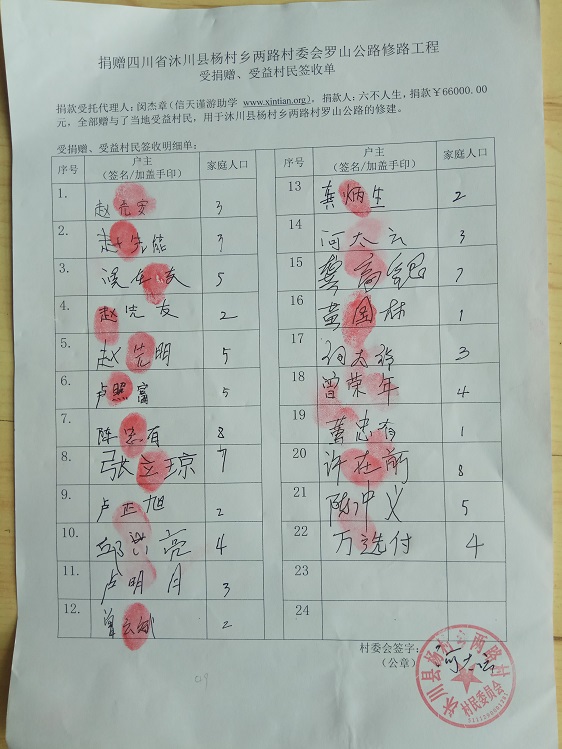 捐赠四川省沐川县杨村乡两路村委会罗山公路修路工程
受捐赠、受益村民签收单
捐款受托代理人：闵杰章（信天谨游助学 www.xintian.org)，捐款人：六不人生，捐款￥66000.00
元，全部赠与了当地受益村民，用于沐川县杨村乡两路村罗山公路的修建。
受捐赠、受益村民签收明细单：
序号 户主（签名/加盖手印） 家庭人口
1. 赵 3
2. 赵先能 3
3. 5
4. 赵先友 2
5. 赵先明 5
6. 卢照富 5
7. 陈忠有 8
8. 张立琼 7
9. 卢正旭 2
10. 邱 亮 4
11. 卢明月 3
12. 2
序号 户主（签名/加盖手印） 家庭人口
13 龚炳生 2
14 河太云 3
15 龚 7
16 黄国林 1
17 3
18 曾荣年 4
19 忠有 1
20 许在前 8
21 陈中义 5
22 万选付 4
23
24
村委会签字：河太云
（公章）
沐川县杨村乡两路村
村民委员会